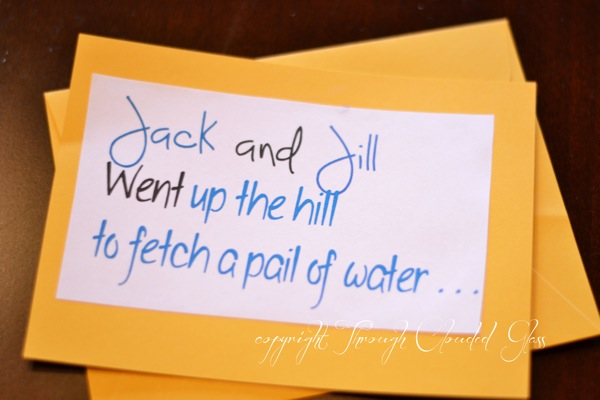 Jack and Jill
Went up the hill
to fetch a pail of water . . .
copyright Through Clouded Glass